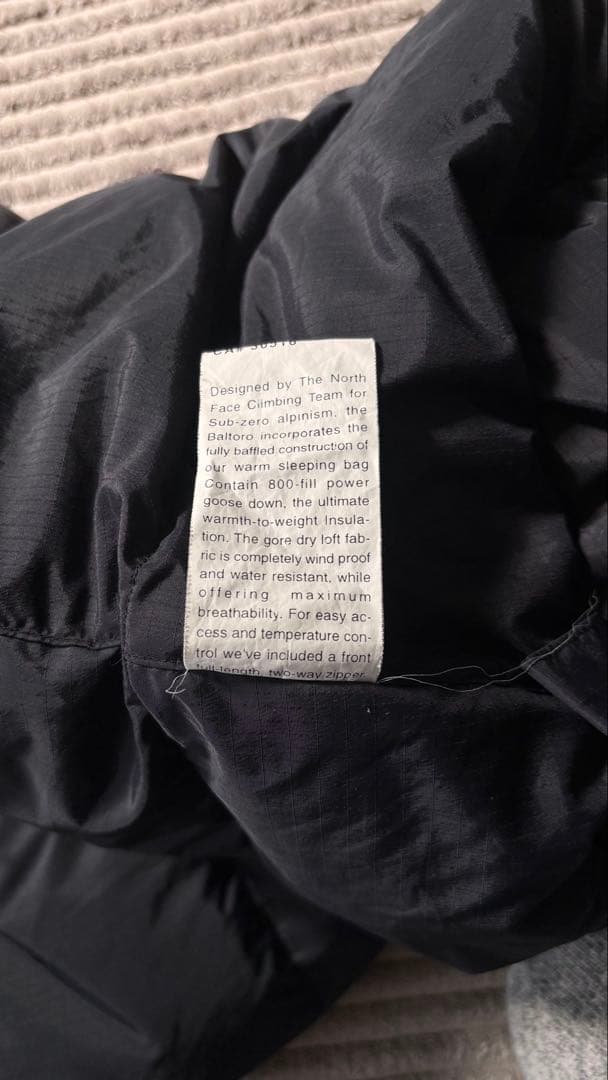 CA# 30516
Designed by The North
Face Climbing Team for
Sub-zero alpinism. the
Baltoro incorporates the
fully baffled construction of
our warm sleeping bag
Contain 800-fill power
goose down, the ultimate
warmth-to-weight Insula-
tion. The gore dry loft fab-
ric is completely wind proof
and water resistant, while
offering maximum
breathability. For easy ac-
cess and temperature con-
trol we've included a front
full-length, two-way zipper